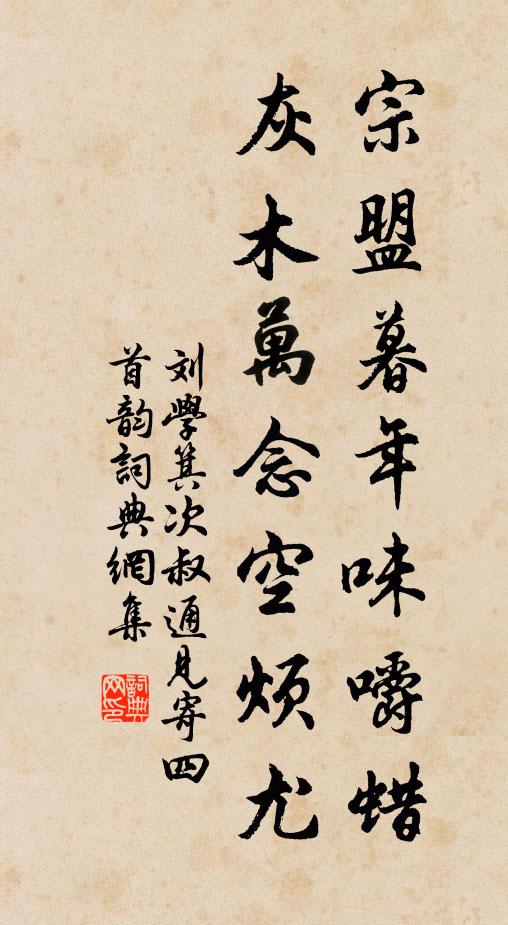 宗盟暮年味嚼蜡
灰木萬念空煩尤
刘學箕次叔通見寄四
首韵詞典網集
詞典
网印